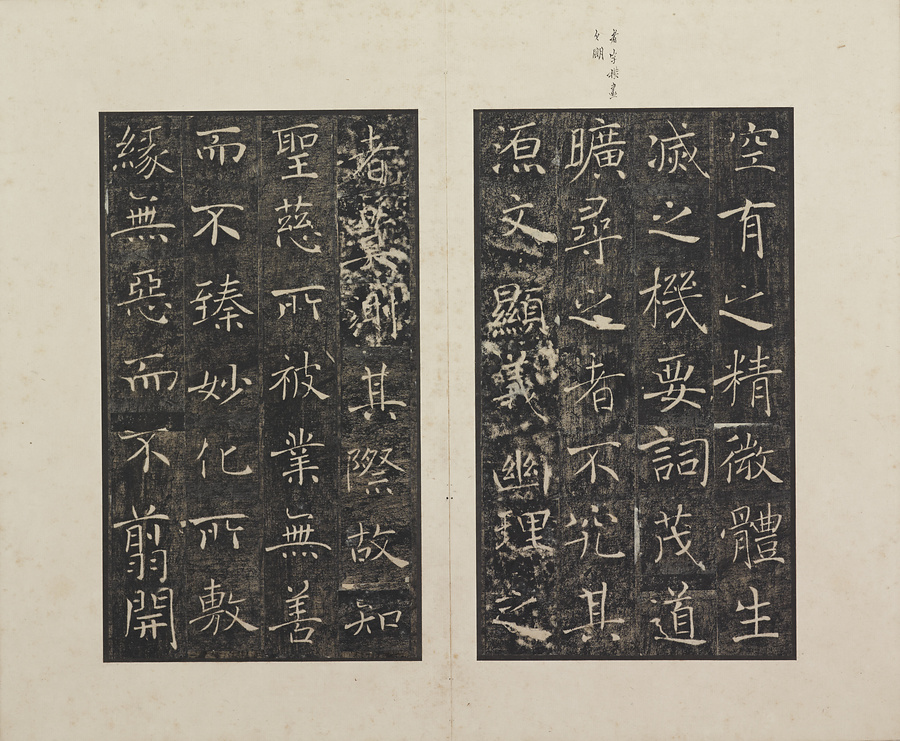 者字橫畫
分明
空有之精微體生
滅之機要詞茂道
曠尋之者不究其
源文顯義幽理之
者莫測其際故知
聖慈所被業無善
而不臻妙化所敷
緣無惡而不翦開